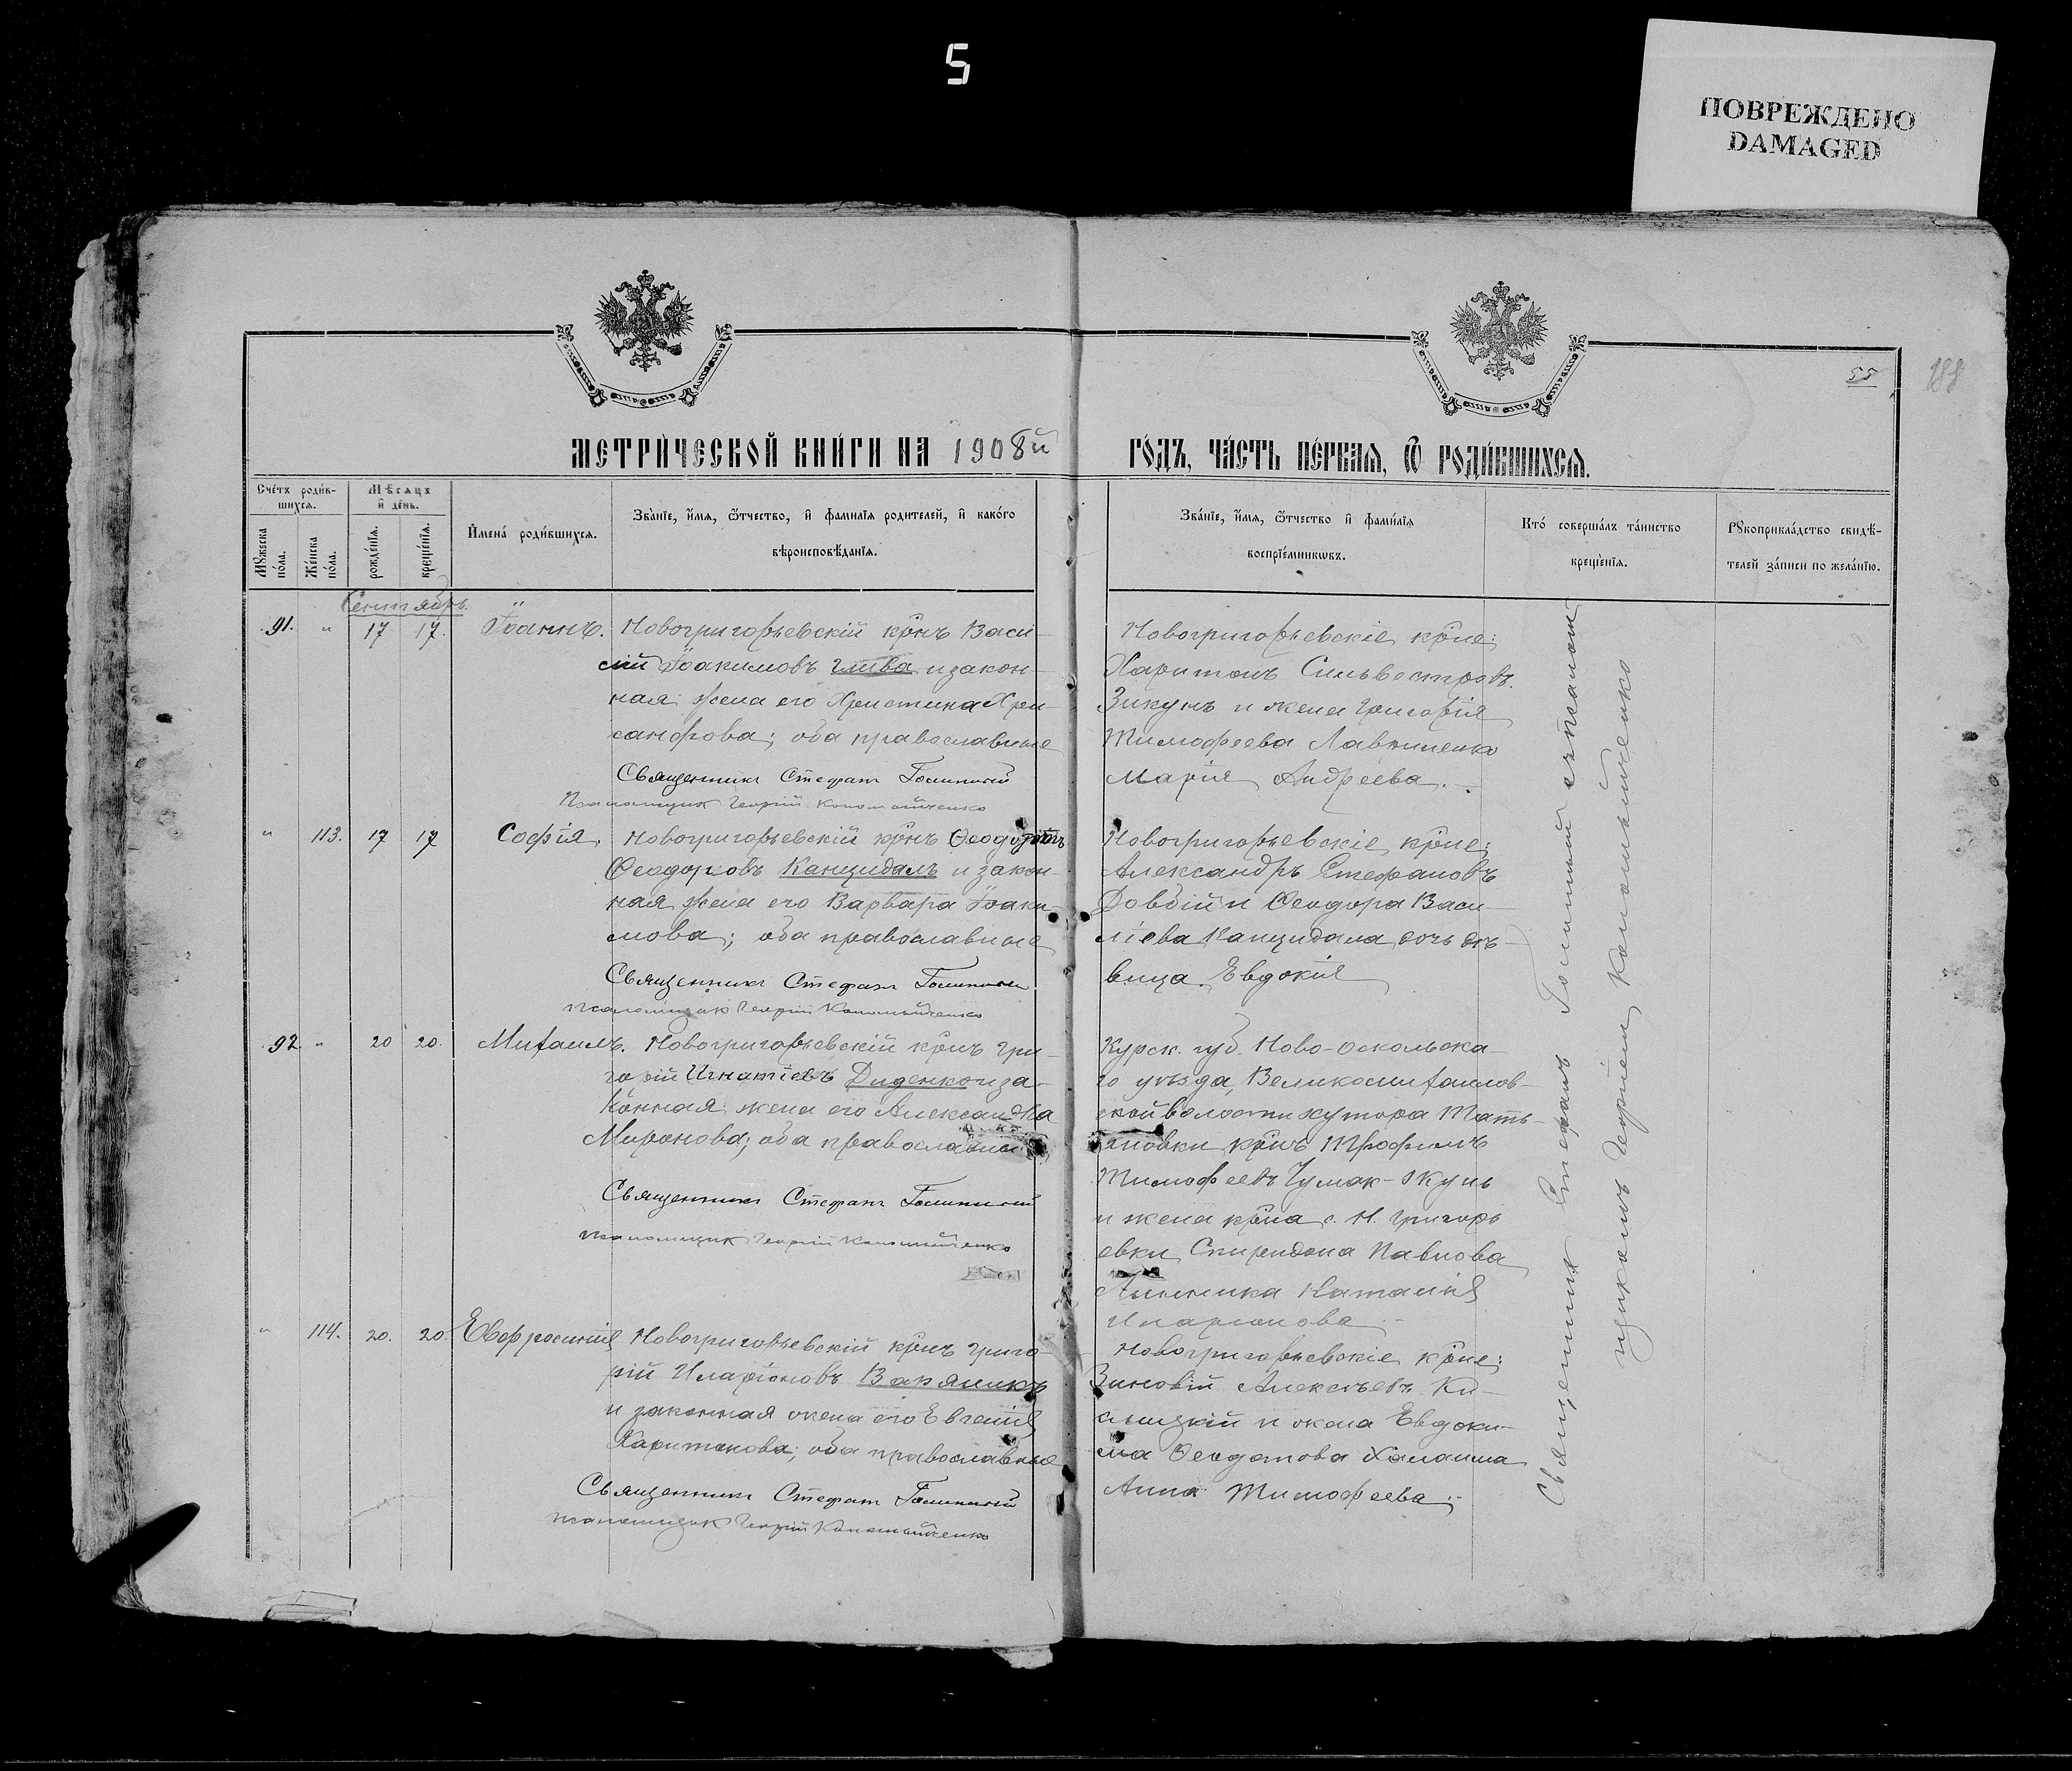 5
ПОВРЕЖДЕНО
DAMAGED
55
188
МЕТРИЧЕСКОЙ КНИГИ НА 1908й
ГОДЪ, ЧАСТЬ ПЕРВАЯ, Ѿ РОДИВШИХСЯ.
Счетъ родив-
шихся.
Мѣсяцъ
и день.
Мужеска
пола.
Женска
пола.
рожденія.
крещенія.
Имена родившихся.
Званіе, имя, ѿчество, и фамилія родителей, и какого
вѣроисповѣданія.
Званіе, имя, ѿчество и фамилія
воспріемниковъ.
Кто совершалъ таинство
крещенія.
Рукоприкладство свидѣ-
телей записи по желанію.
Сентябрь.
91. " 17 17. Іоаннъ.
Новогригорьевскій крнъ Васи-
лій Іоакимовъ Глива и закон-
ная жена его Христина Хри-
санфова; оба православные
Священникъ Стефанъ
Псаломщик Георгій
Новогригорьевскіе крне:
Харитонъ Сильвестровъ
Зикунъ и жена Григорія
Тимофеева
Марія Андреева.
" 113. 17 17 Софія.
Новогригорьевскій крнъ
Ѳеодоровъ Канцидалъ и закон-
ная жена его Варвара Іоаки-
мова; оба православные
Священникъ Стефанъ
Псаломщик Георгій
Новогригорьевскіе крне:
Александръ Стефановъ
Довбій и Ѳеодора Васи-
ліева Канцидала дочь дѣ-
вица Евдокія
92 " 20 20. Михаилъ.
Новогригорьевскій крнъ Гри-
горій Игнатіевъ Диденко и за-
конная жена его Александра
Миронова; оба православные
Священникъ Стефанъ
Псаломщик Георгій
Курск. губ. Ново-Оскольска-
го уѣзда, Великомихайлов-
ской волости хутора Тать-
яновки крнъ Трофимъ
Тимофеевъ Чумак-
и жена крна с. Н. Григорь
евки Спиридона Павлова
Наталія
Иларіонова
" 114. 20. 20. Евфросинія
Новогригорьевскій крнъ Григо-
рій Иларіоновъ Варяникъ
и законная жена его Евгенія
Харитонова; оба православные
Священникъ Стефанъ
Псаломщик Георгій
Новогригорьевскіе крне:
Зиновій Алексѣевъ Ки-
и жена Евдоки-
ма
Анна Тимофеева.
Священникъ Стефанъ съ псалом-
щикомъ Георгіем